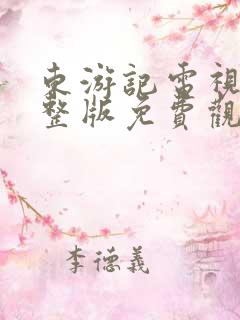 東游記電視
整版免費觀
李德義